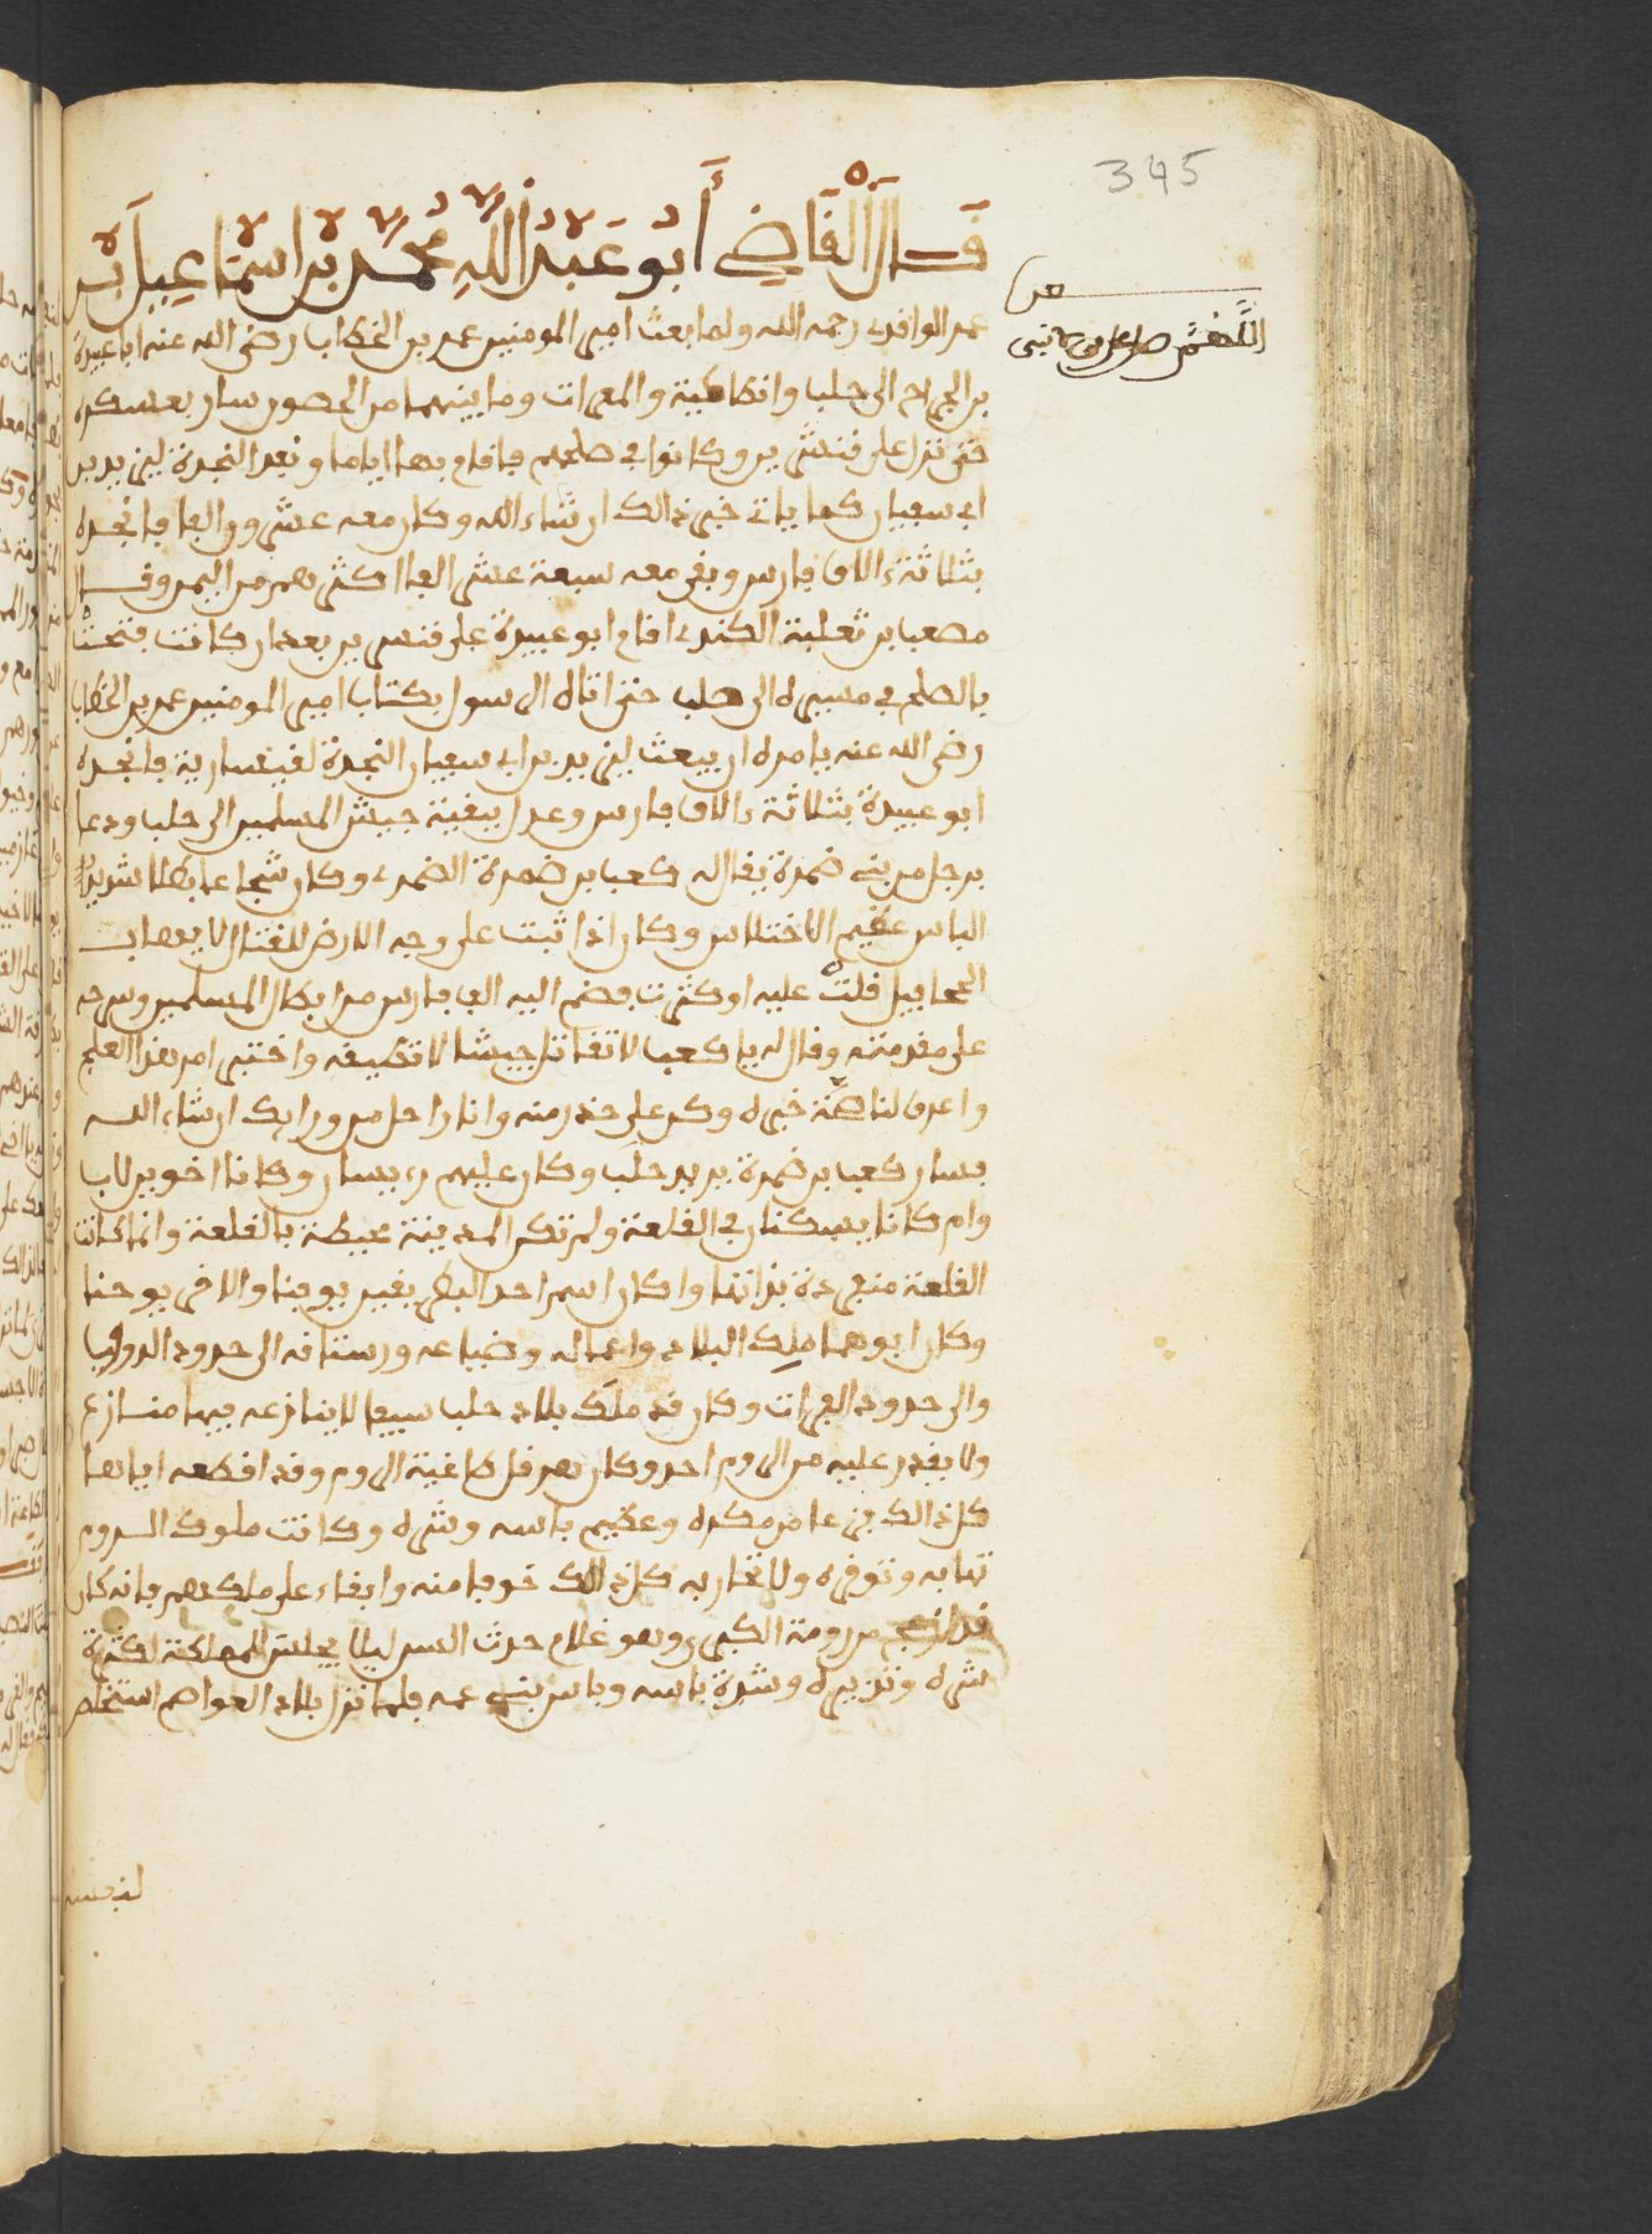 345
قال القاضي أبو عبد الله محمد بن اسماعيل بن
عمر الواقدي رحمه الله ولما بعث امير المومنين عمر بن الخطاب رضي الله عنه ابا عبيدة
بن الجراح الى حلب وانطاكية والمعرات وما بينهما من الحصون سار بعسكره
حتى نزل على قنسرين وكانوا في صلحهم فاقام بها اياما ونفد النجدة ليزيد بن
ابي سفيان كما ياتي خبر ذالك ان شاء الله وكان معه عشرون الفا فانجده
بثلاثة ءالاف فارس وبقي معه سبعة عشر الفا اكثرهم من اليمن وقال
مصعب بن ثعلبة الكندي اقام ابو عبيدة على قنسرين بعد ان كانت فتحت
بالصلح في مسيره الى حلب حتى اتاه الرسول بكتاب امير المومنين عمر بن الخطاب
رضي الله عنه يامره ان يبعث ليزيد بن ابي سفيان النجدة لقيسارية فانجده
ابو عبيدة بثلاثة ءالاف فارس وعدل ببقية جيش المسلمين الى حلب ودعا
برجل من بني ضمرة يقال له كعب بن ضمرة الضمري وكان شجاعا بطلا شديد
الباس عظيم الاختلاس وكان اذا ثبت على وجه الارض للقتال لا يهاب
الجحافيل قلت عليه او كثرت فضم اليه الف فارس من ابطال المسلمين وسرحه
على مقدمته وقال له يا كعب لا تقاتل جيشا لا تطيقه واختبر امر هذا العلج
واعرف لنا صحة خبره وكن على حذر منه وانا راحل من ورايك ان شاء الله
فسار كعب بن ضمرة يريد حلب وكان عليهم رييسان وكانا اخوين لاب
وام كانا يسكنان في القلعة ولم تكن المدينة محيطة بالقلعة وانما كانت
القلعة منفردة بذاتها وكان اسم احد البطريقين يوقنا والاخر يوحنا
وكان ابوهما ملك البلاد واعماله وضياعه ورستاقه الى حدود الدروب
والى حدود الفرات وكان قد ملك بلاد حلب سنينا لا ينازعه فيها منازع
ولا يقدر عليه من الروم احد وكان هرقل طاغية الروم وقد اقطعه اياها
كل ذالك فزعا من مكره وعظيم باسه وشره وكانت ملوك الروم
تهابه وتوقره ولا تحاربه كل ذالك خوفا منه وابقاء على ملكهم فانه كان
قد ازعج من رومة الكبرى وهو غلام حدث السن ليلا يجلس للمملكة لكثرة
شره وتدبيره وشدة باسه وباس بني عمه فلما نزل بلاد العواصم استخلص
لنفسه